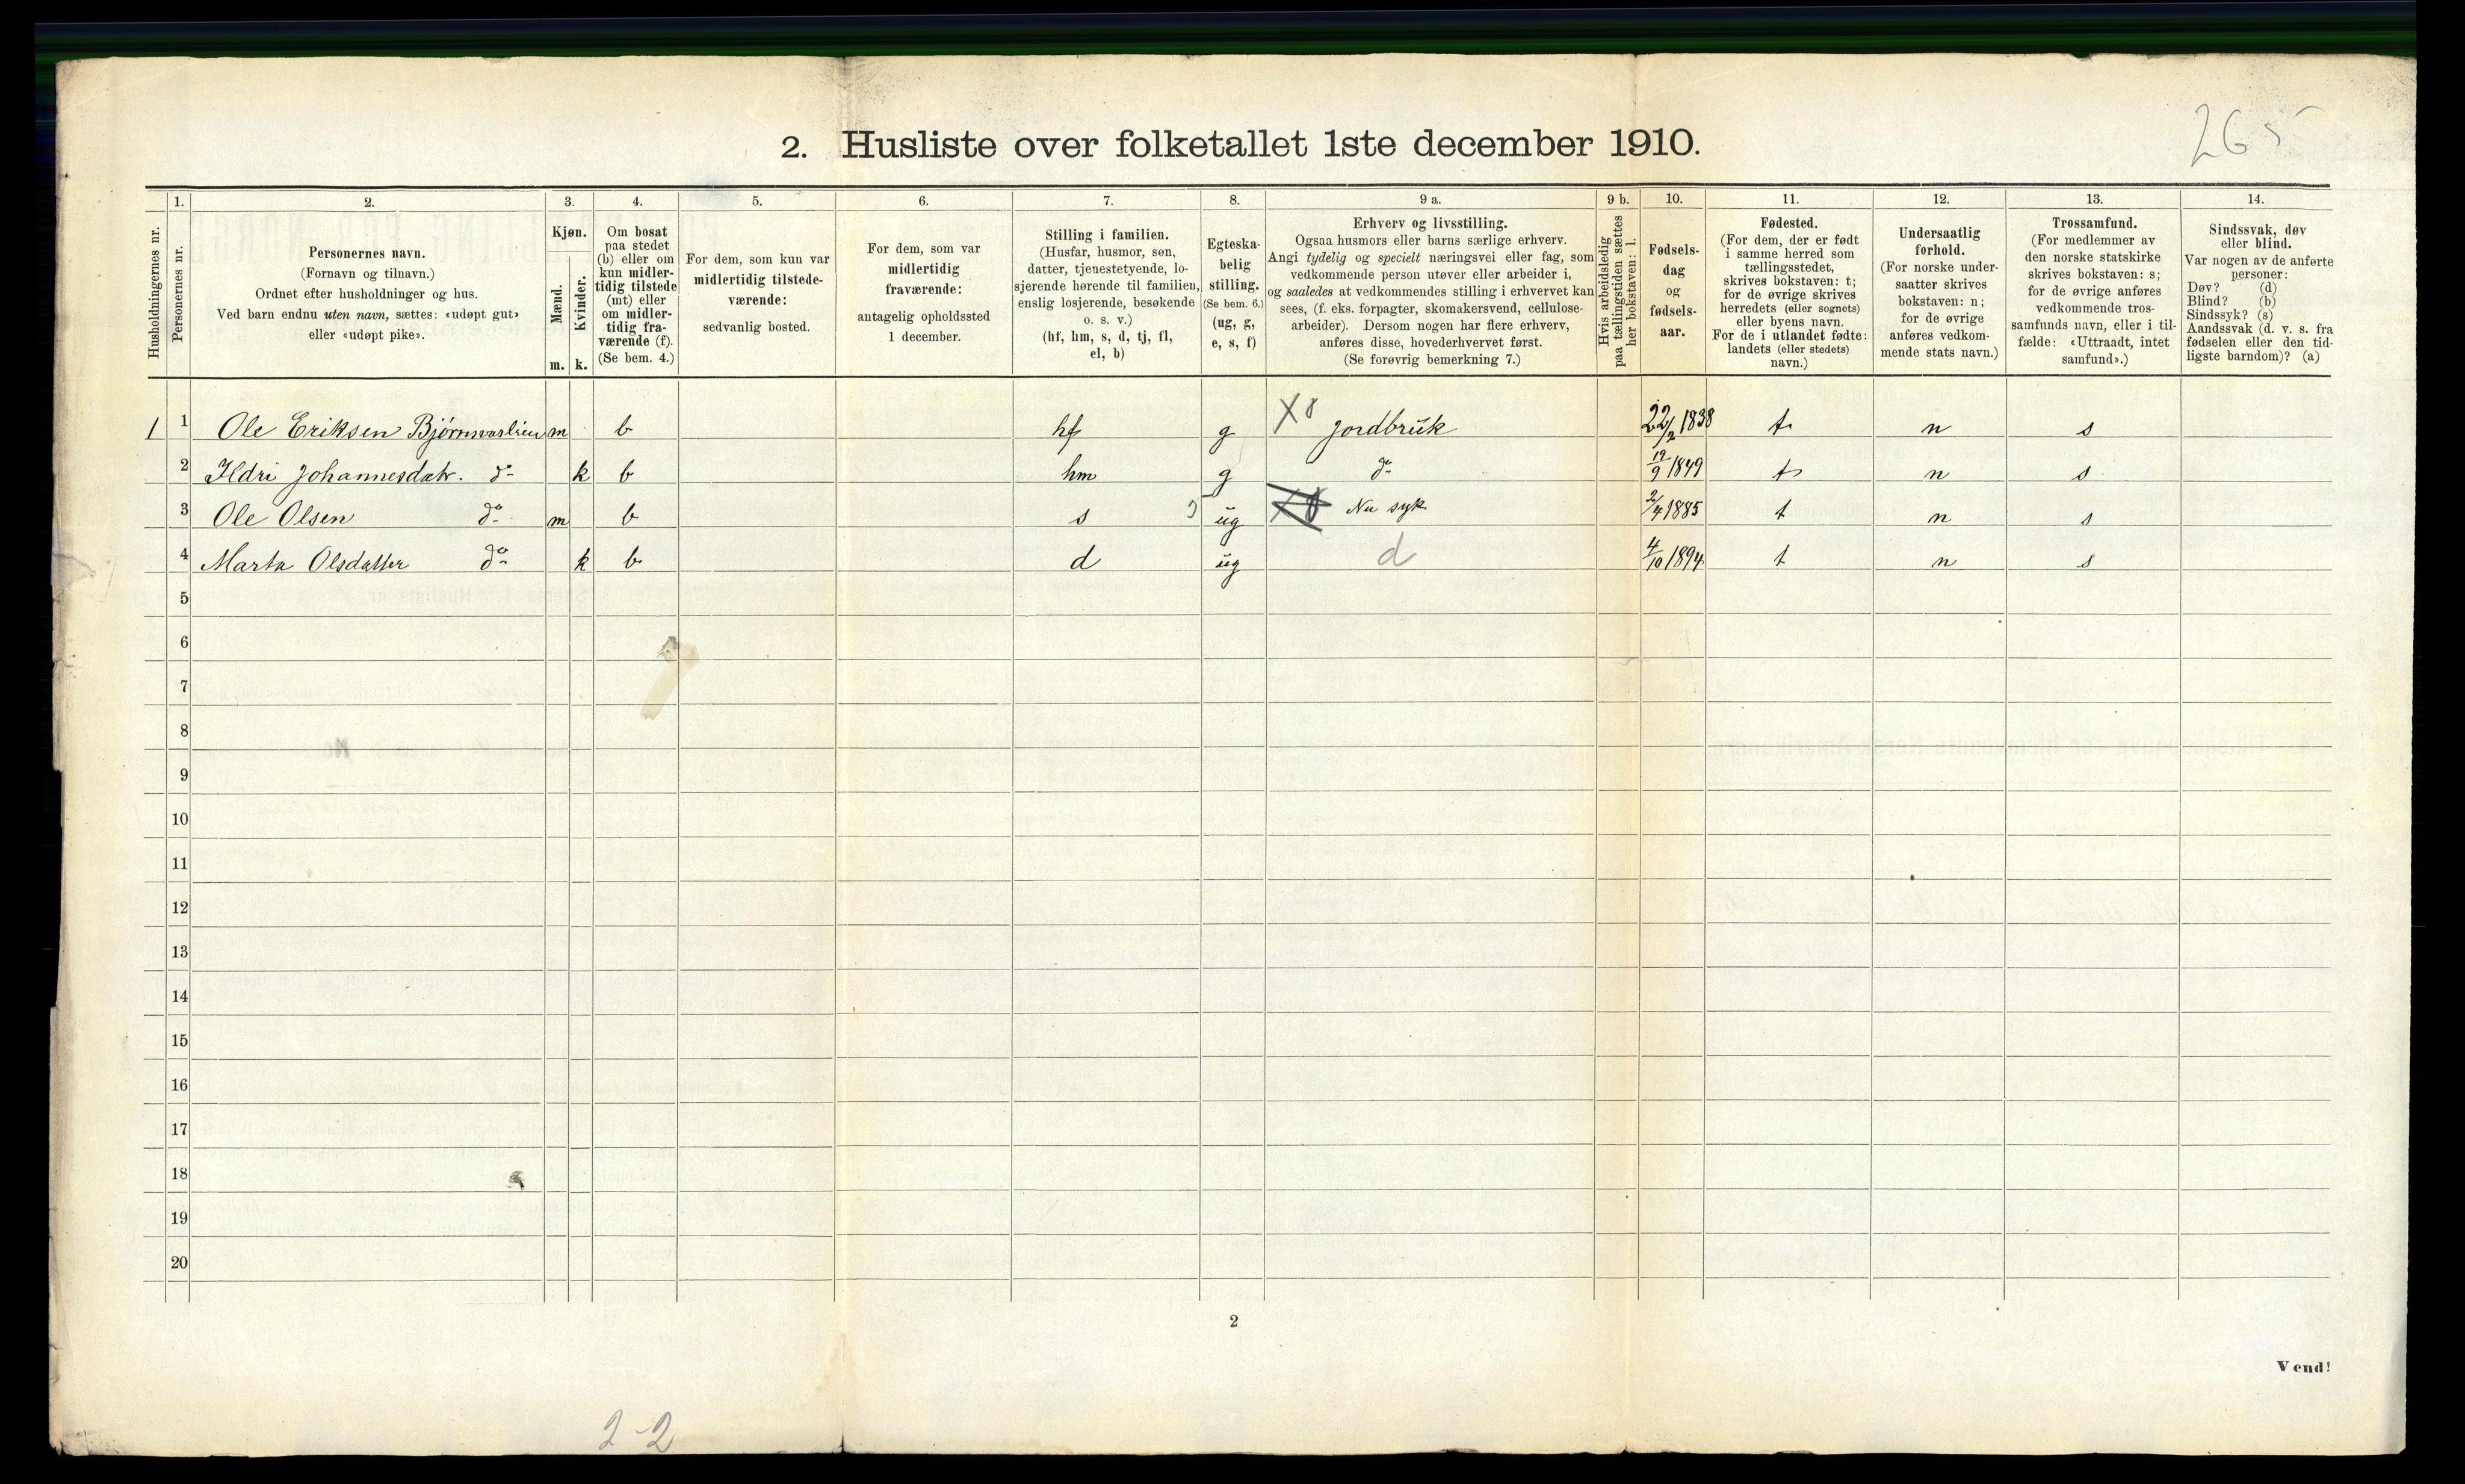 265
2. Husliste over folketallet 1ste december 1910.
Husholdningernes nr.
1.
Personernes nr.
2.
Personernes navn.
(Fornavn og tilnavn.)
Ordnet efter husholdninger og hus.
Ved barn endnu uten navn, sættes: «udøpt gut»
eller «udøpt pike».
3.
Kjøn.
Mænd.
m.
Kvinder.
k.
4.
Om bosat
paa stedet
(b) eller om
kun midler-
tidig tilstede
(mt) eller
om midler-
tidig fra-
værende (f).
(Se bem. 4.)
5.
For dem, som kun var
midlertidig tilstede-
værende:
sedvanlig bosted.
6.
For dem, som var
midlertidig
fraværende:
antagelig opholdssted
1 december.
7.
Stilling i familien.
(Husfar, husmor, søn,
datter, tjenestetyende, lo-
sjerende hørende til familien,
enslig losjerende, besøkende
o. s. v.)
(hf, hm, s, d, tj, fl,
el, b)
8.
Egteska-
belig
stilling.
(Se bem. 6.)
(ug, g,
e, s, f)
9 a.
Erhverv og livsstilling.
Ogsaa husmors eller barns særlige erhverv.
Angi tydelig og specielt næringsvei eller fag, som
vedkommende person utøver eller arbeider i,
og saaledes at vedkommendes stilling i erhvervet kan
sees, (f. eks. forpagter, skomakersvend, cellulose-
arbeider). Dersom nogen har flere erhverv,
anføres disse, hovederhvervet først.
(Se forøvrig bemerkning 7.)
9 b.
Hvis arbeidsledig
paa tællingstiden sættes
her bokstaven: l.
10.
Fødsels-
dag
og
fødsels-
aar.
11.
Fødested.
(For dem, der er født
i samme herred som
tællingsstedet,
skrives bokstaven: t;
for de øvrige skrives
herredets (eller sognets)
eller byens navn.
For de i utlandet fødte:
landets (eller stedets)
navn.)
12.
Undersaatlig
forhold.
(For norske under-
saatter skrives
bokstaven: n;
for de øvrige
anføres vedkom-
mende stats navn.)
13.
Trossamfund.
(For medlemmer av
den norske statskirke
skrives bokstaven: s;
for de øvrige anføres
vedkommende tros-
samfunds navn, eller i til-
fælde: «Uttraadt, intet
samfund».)
14.
Sindssvak, døv
eller blind.
Var nogen av de anførte
personer:
Døv? (d)
Blind? (b)
Sindssyk? (s)
Aandssvak (d. v. s. fra
fødselen eller den tid-
ligste barndom)? (a)
1 1 Ole Eriksen Bjørnsvaslien m b hf g X8 Jordbruk 22/2 1838 t n s
2 Ildri Johannesdatr. do k b hm g do 19/9 1849 t n s
3 Ole Olsen do m b s ug Nu syk 2/4 1885 t n s
4 Marta Olsdatter do k b d ug d 4/10 1894 t n s
5
6
7
8
9
10
11
12
13
14
15
16
17
18
19
20
2
Vend!
2-2